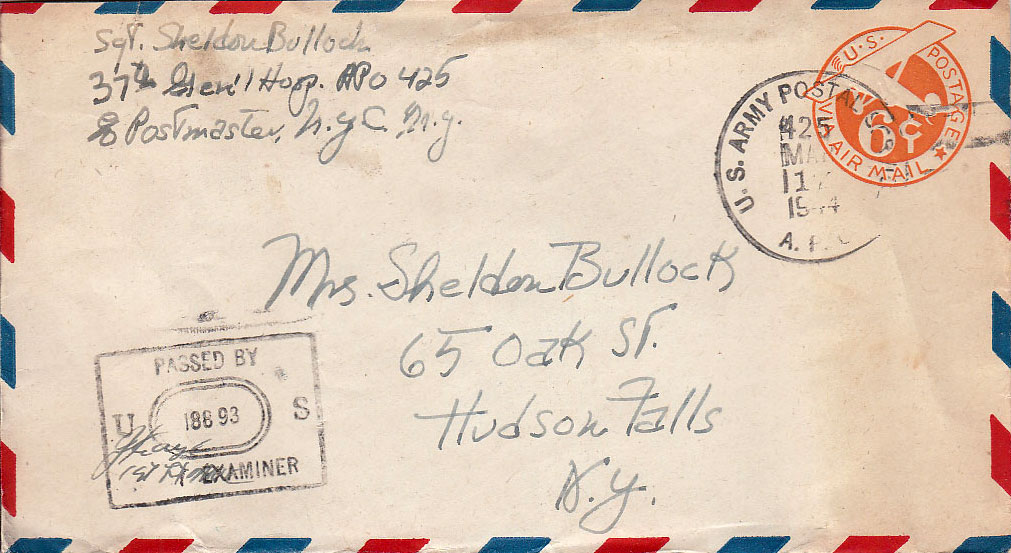 Sgt. Sheldon Bullock
37th Gen'l Hosp. APO 425
% Postmaster, N.Y.C. N.Y.
U.S. POSTAGE
6¢
VIA AIR MAIL
U.S. ARMY POSTAL
425
MAR
17
1944
A. P. O.
Mrs. Sheldon Bullock
65 Oak St.
Hudson Falls
N.Y.
PASSED BY
U 18893 S
ARMY EXAMINER